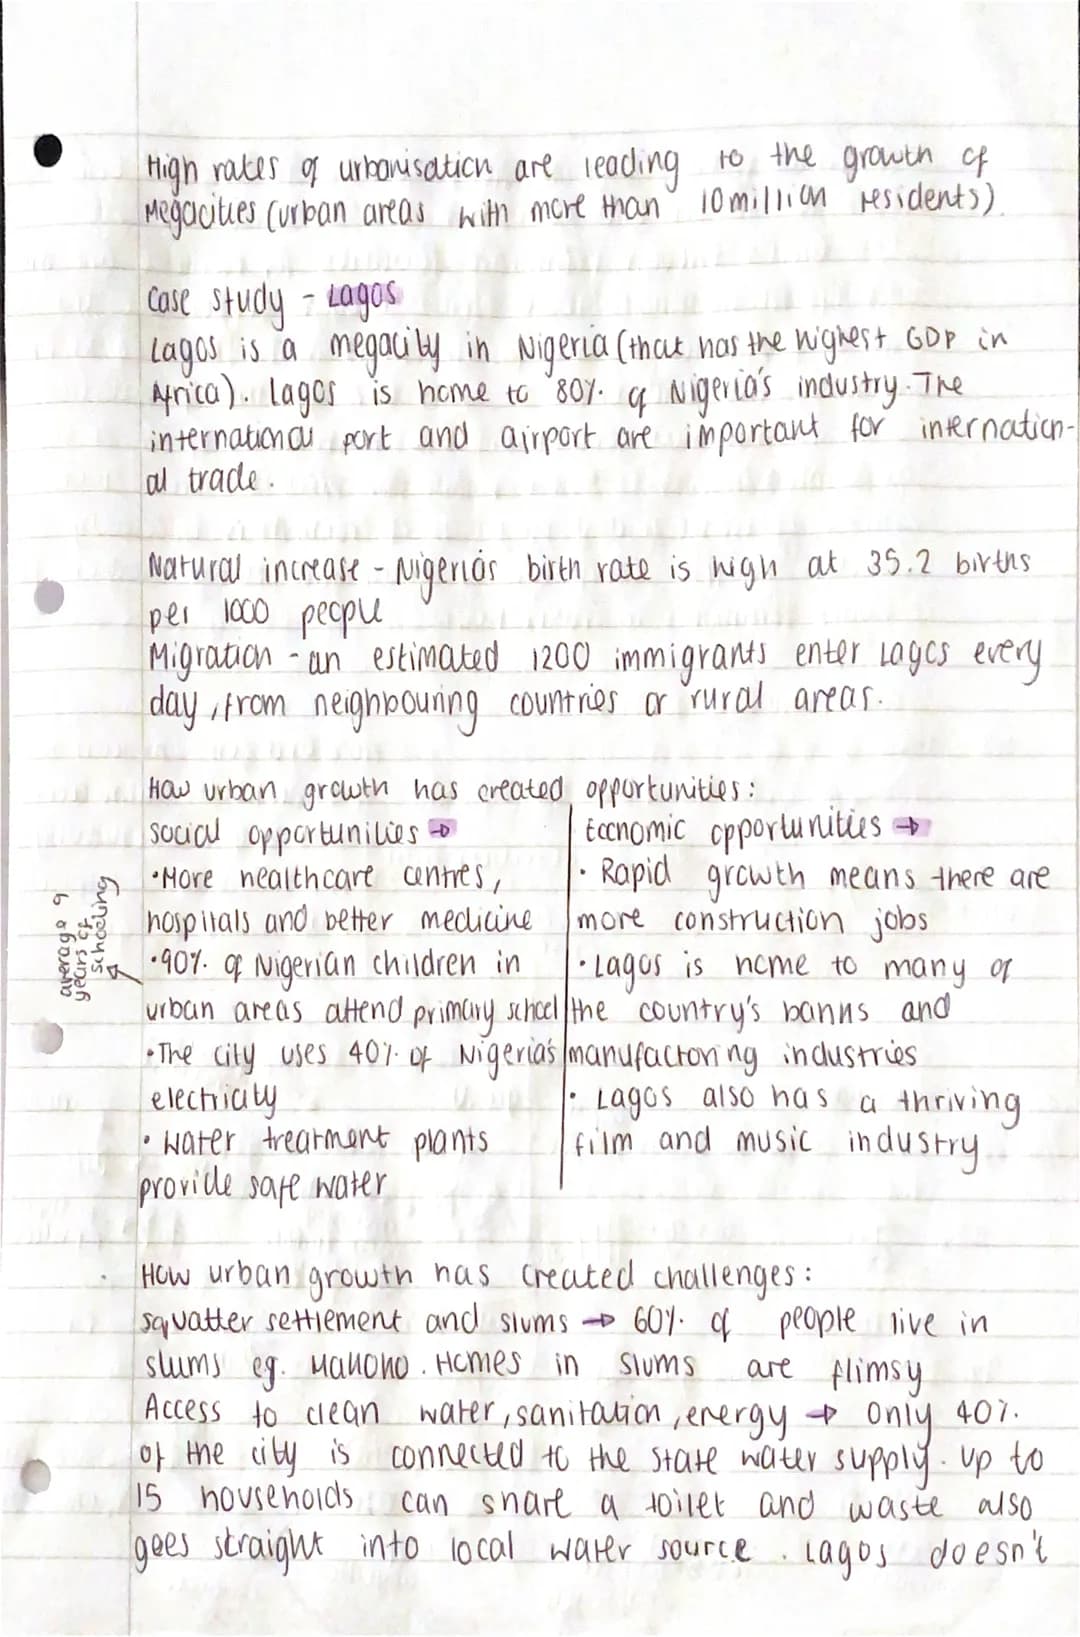 High rates of urbanisation are leading to the growth of
Megacities (urban areas with more than 10 million residents).
Case study - Lagos
Lagos is a megacity in Nigeria (that has the highest GDP in
Africa). Lagos is home to 80% of Nigeria's industry. The
international port and airport are important for internation-
al trade.
Natural increase - Nigeria's birth rate is high at 35.2 births
per 1000 people
Migration - an estimated 1200 immigrants enter Lagos every
day, from neighbouring countries or rural areas.
How urban growth has created opportunities:
social opportunities →
• More healthcare centres,
hospitals and better medicine
• 90% of Nigerian children in
urban areas attend primary school
average 9
years of
schooling
• The city uses 40% of Nigeria's
electricity
• water treatment plants
provide safe water
Economic opportunities →
• Rapid growth means there are
more construction jobs
• Lagos is home to many of
the country's banks and
manufactoring industries
• Lagos also has a thriving
film and music industry
How urban growth has created challenges:
squatter settlement and slums → 60% of people live in
slums eg. Makoko. Homes in slums are flimsy
Access to clean water, sanitation, energy → only 40%
of the city is connected to the state water supply. Up to
15 households can share a toilet and waste also
goes straight into local water source. Lagos doesn't